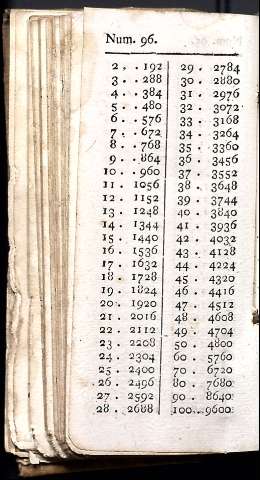 Num. 96.
2 . . 192
3 . . 288
4 . . 384
5 . . 480
6 . . 576
7 . . 672
8 . . 768
9 . . 864
10 . . 960
11 . 1056
12 . 1152
13 . 1248
14 . 1344
15 . 1440
16 . 1536
17 . 1632
18 . 1728
19 . 1824
20 . 1920
21 . 2016
22 . 2112
23 . 2208
24 . 2304
25 . 2400
26 . 2496
27 . 2592
28 . 2688
29 . 2784
30 . 2880
31 . 2976
32 . 3072
33 . 3168
34 . 3264
35 . 3360
36 . 3456
37 . 3552
38 . 3648
39 . 3744
40 . 3840
41 . 3936
42 . 4032
43 . 4128
44 . 4224
45 . 4320
46 . 4416
47 . 4512
48 . 4608
49 . 4704
50 . 4800
60 . 5760
70 . 6720
80 . 7680
90 . 8640
100 . 9600